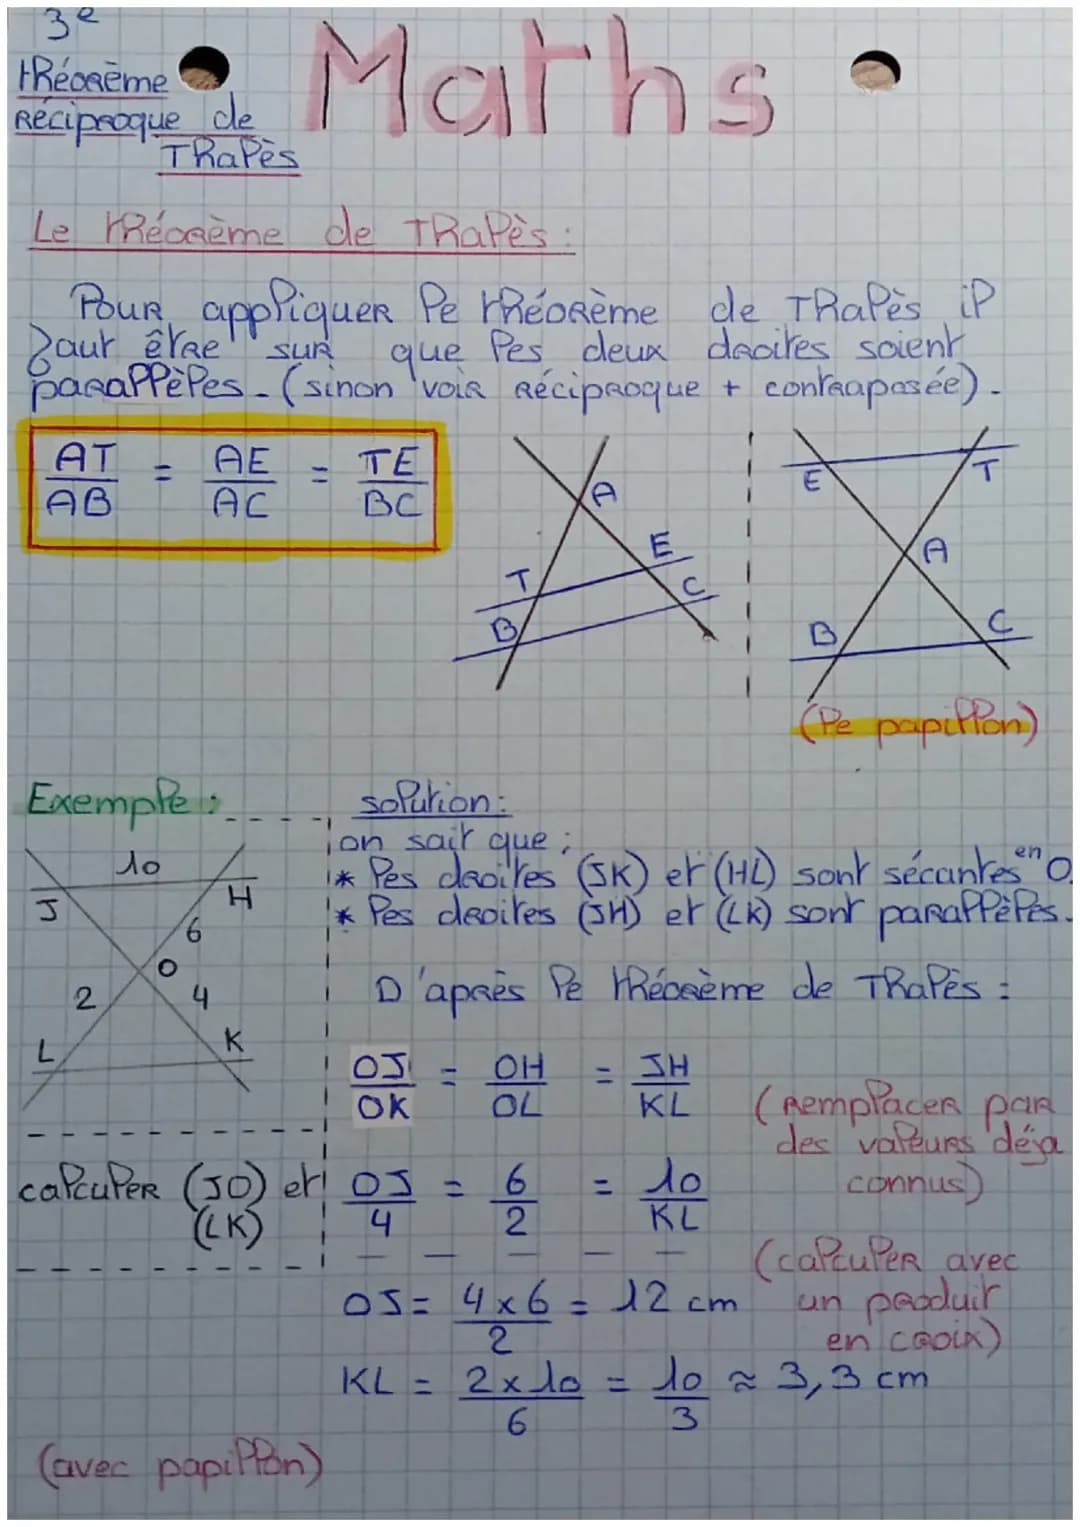 3e
Maths
théorème
réciproque de
Thalès
Le théorème de Thalès :
Pour appliquer le théorème de Thalès il
faut être sur que les deux droites soient
parallèles. (sinon voir réciproque + contraposée).
AT/AB = AE/AC = TE/BC
A
E
T
C
B
E
T
A
B
C
(le papillon)
Exemple :
10
J
H
6
O
2
4
L
K
calculer (JO) et
(LK)
(avec papillon)
solution :
on sait que :
* les droites (JK) et (HL) sont sécantes en O.
* les droites (JH) et (LK) sont parallèles.
D'après le théorème de Thalès :
OJ/OK = OH/OL = JH/KL
(remplacer par
des valeurs déja
connus)
OJ/4 = 6/2 = 10/KL
(calculer avec
un produit
en croix)
OJ = 4x6/2 = 12 cm
KL = 2x10/6 = 10/3 ≈ 3,3 cm